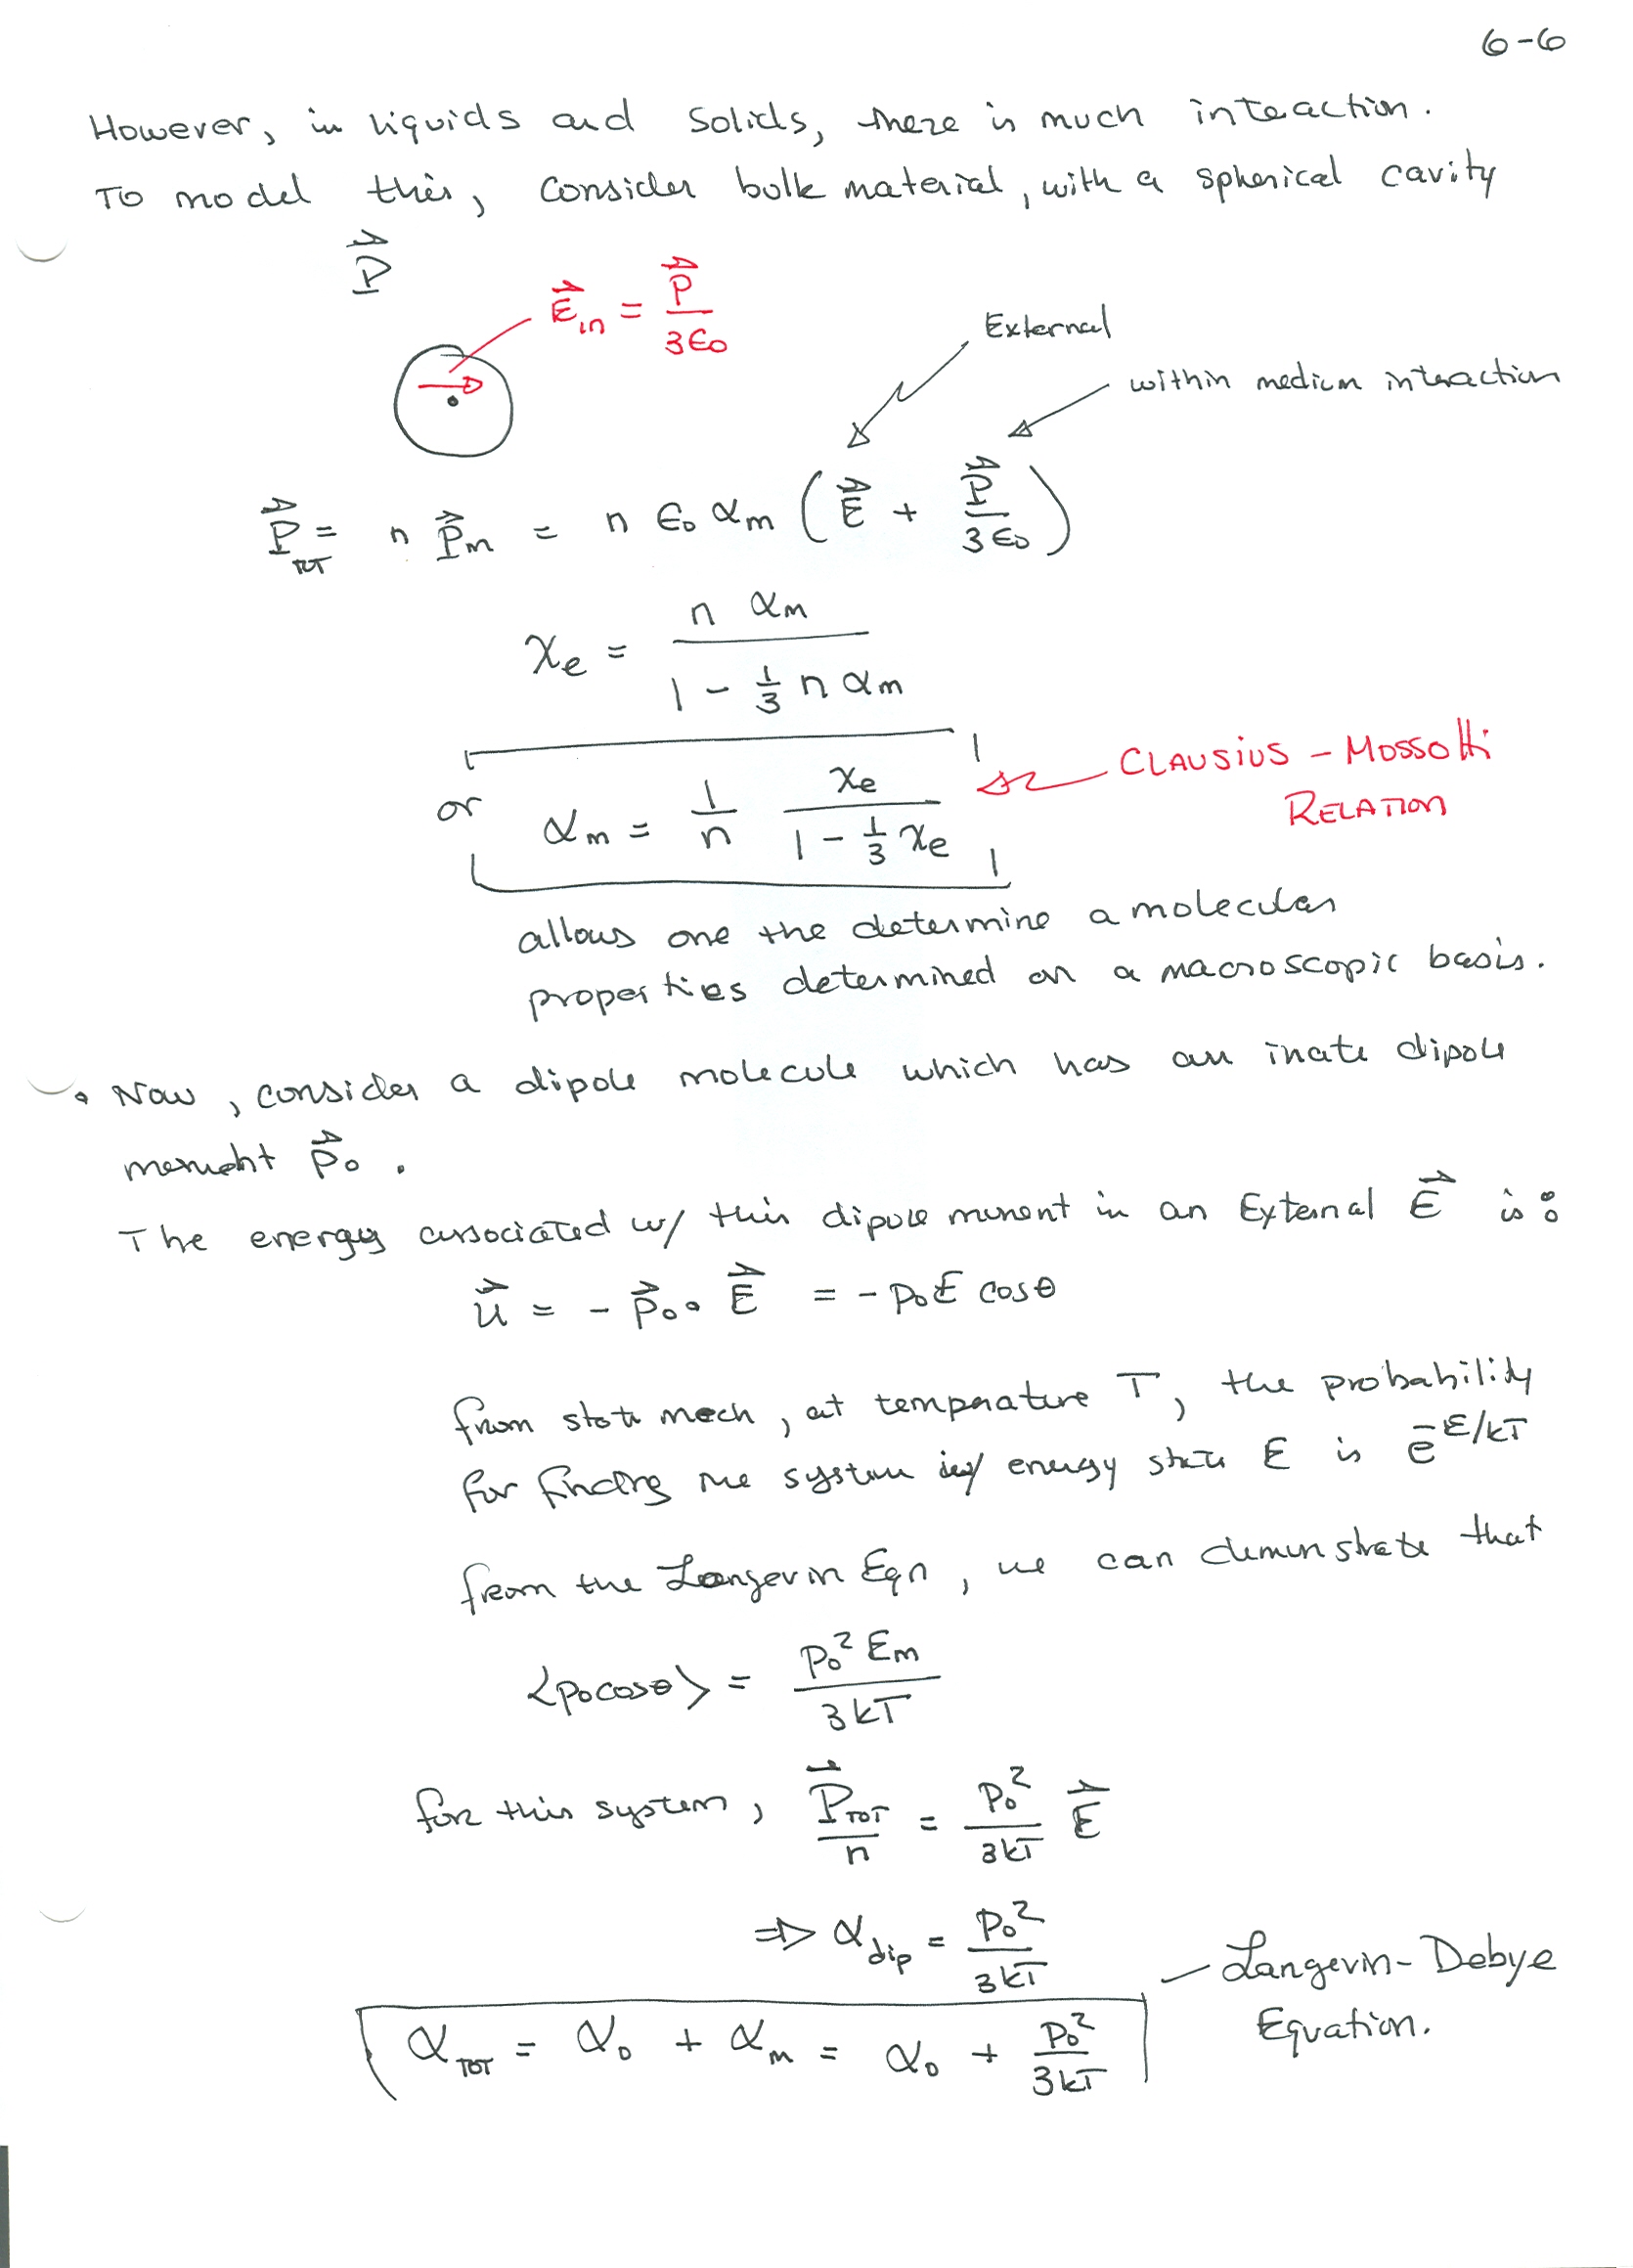 6-6
However, in liquids and solids, there is much inteaction.
To model this, consider bulk material, with a spherical cavity
P⃗
E⃗in = P⃗ / 3ϵ0
External
within medium interaction
P⃗TOT = n p⃗m = n ϵ0 αm (E⃗ + P⃗ / 3ϵ0)
χe = n αm / (1 - 1/3 n αm)
or αm = 1/n χe / (1 - 1/3 χe)
CLAUSIUS - MOSSOtti
RELATION
allows one the determine a molecular
properties determined on a macroscopic basis.
• Now, consider a dipole molecule which has an inate dipole
moment p⃗0.
The energy associated w/ this dipole moment in an External E⃗ is:
u⃗ = - p⃗0 • E⃗ = - p0E cosθ
from state mech, at temperature T, the probability
for finding the system w/ energy state E is e^-E/kT
from the Langevin Eqn, we can demonstrate that
<p0cosθ> = p0² Em / 3kT
for this system, P⃗TOT / n = p0² / 3kT E⃗
⇒ αdip = p0² / 3kT
Langevin-Debye
Equation.
αTOT = α0 + αm = α0 + p0² / 3kT